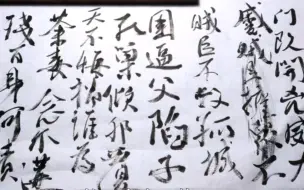 門既開凶威大
蹙賊臣擁衆不
賊臣不救孤城
圍逼父陷子
死巢傾卵覆
天不悔禍誰為
荼毒念爾遘
殘百身何贖